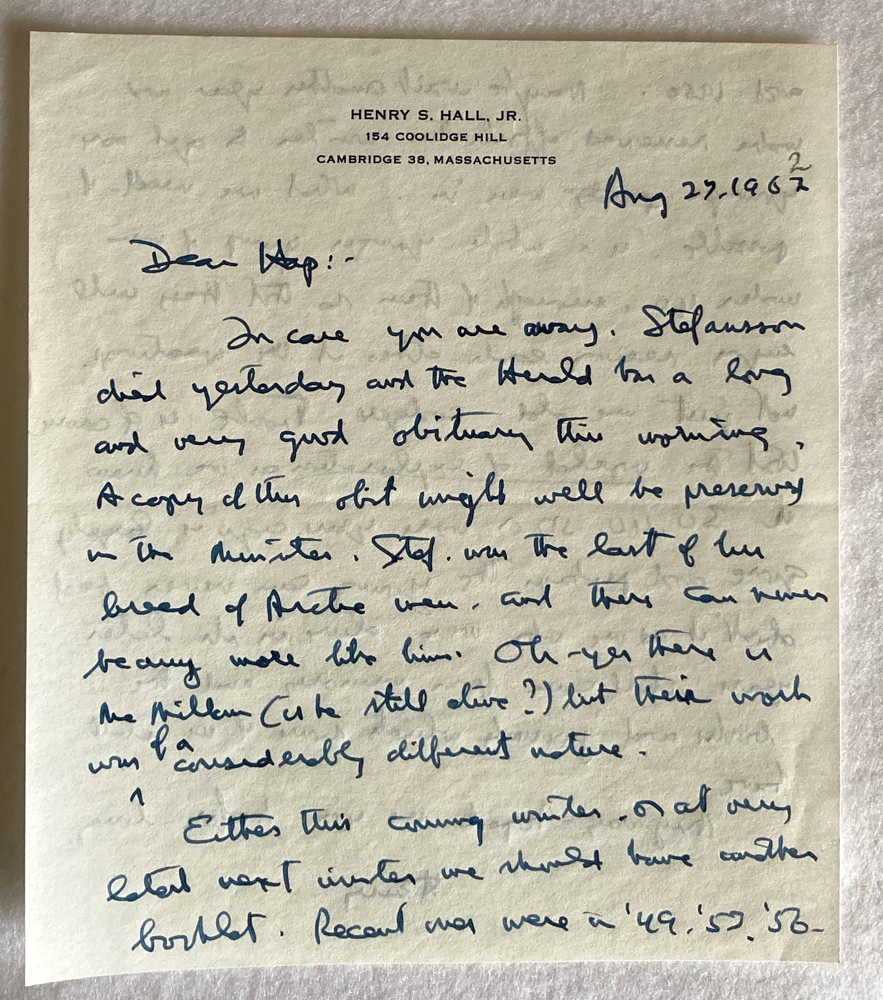 HENRY S. HALL, JR.
154 COOLIDGE HILL
CAMBRIDGE 38, MASSACHUSETTS
Aug 27, 1962
Dear Hap:-
In case you are away. Stefansson
died yesterday and the Herald has a long
and very good obituary this morning.
A copy of this obit might well be preserved
in the minutes. Stef. was the last of his
breed of Arctic men. and there can never
be any more like him. Oh-yes there is
MacMillan (is he still alive?) but their work
was of a considerably different nature.
Either this coming winter, or at very
latest next winter we should have another
booklet. Recent ones were in '49, '53, '56-